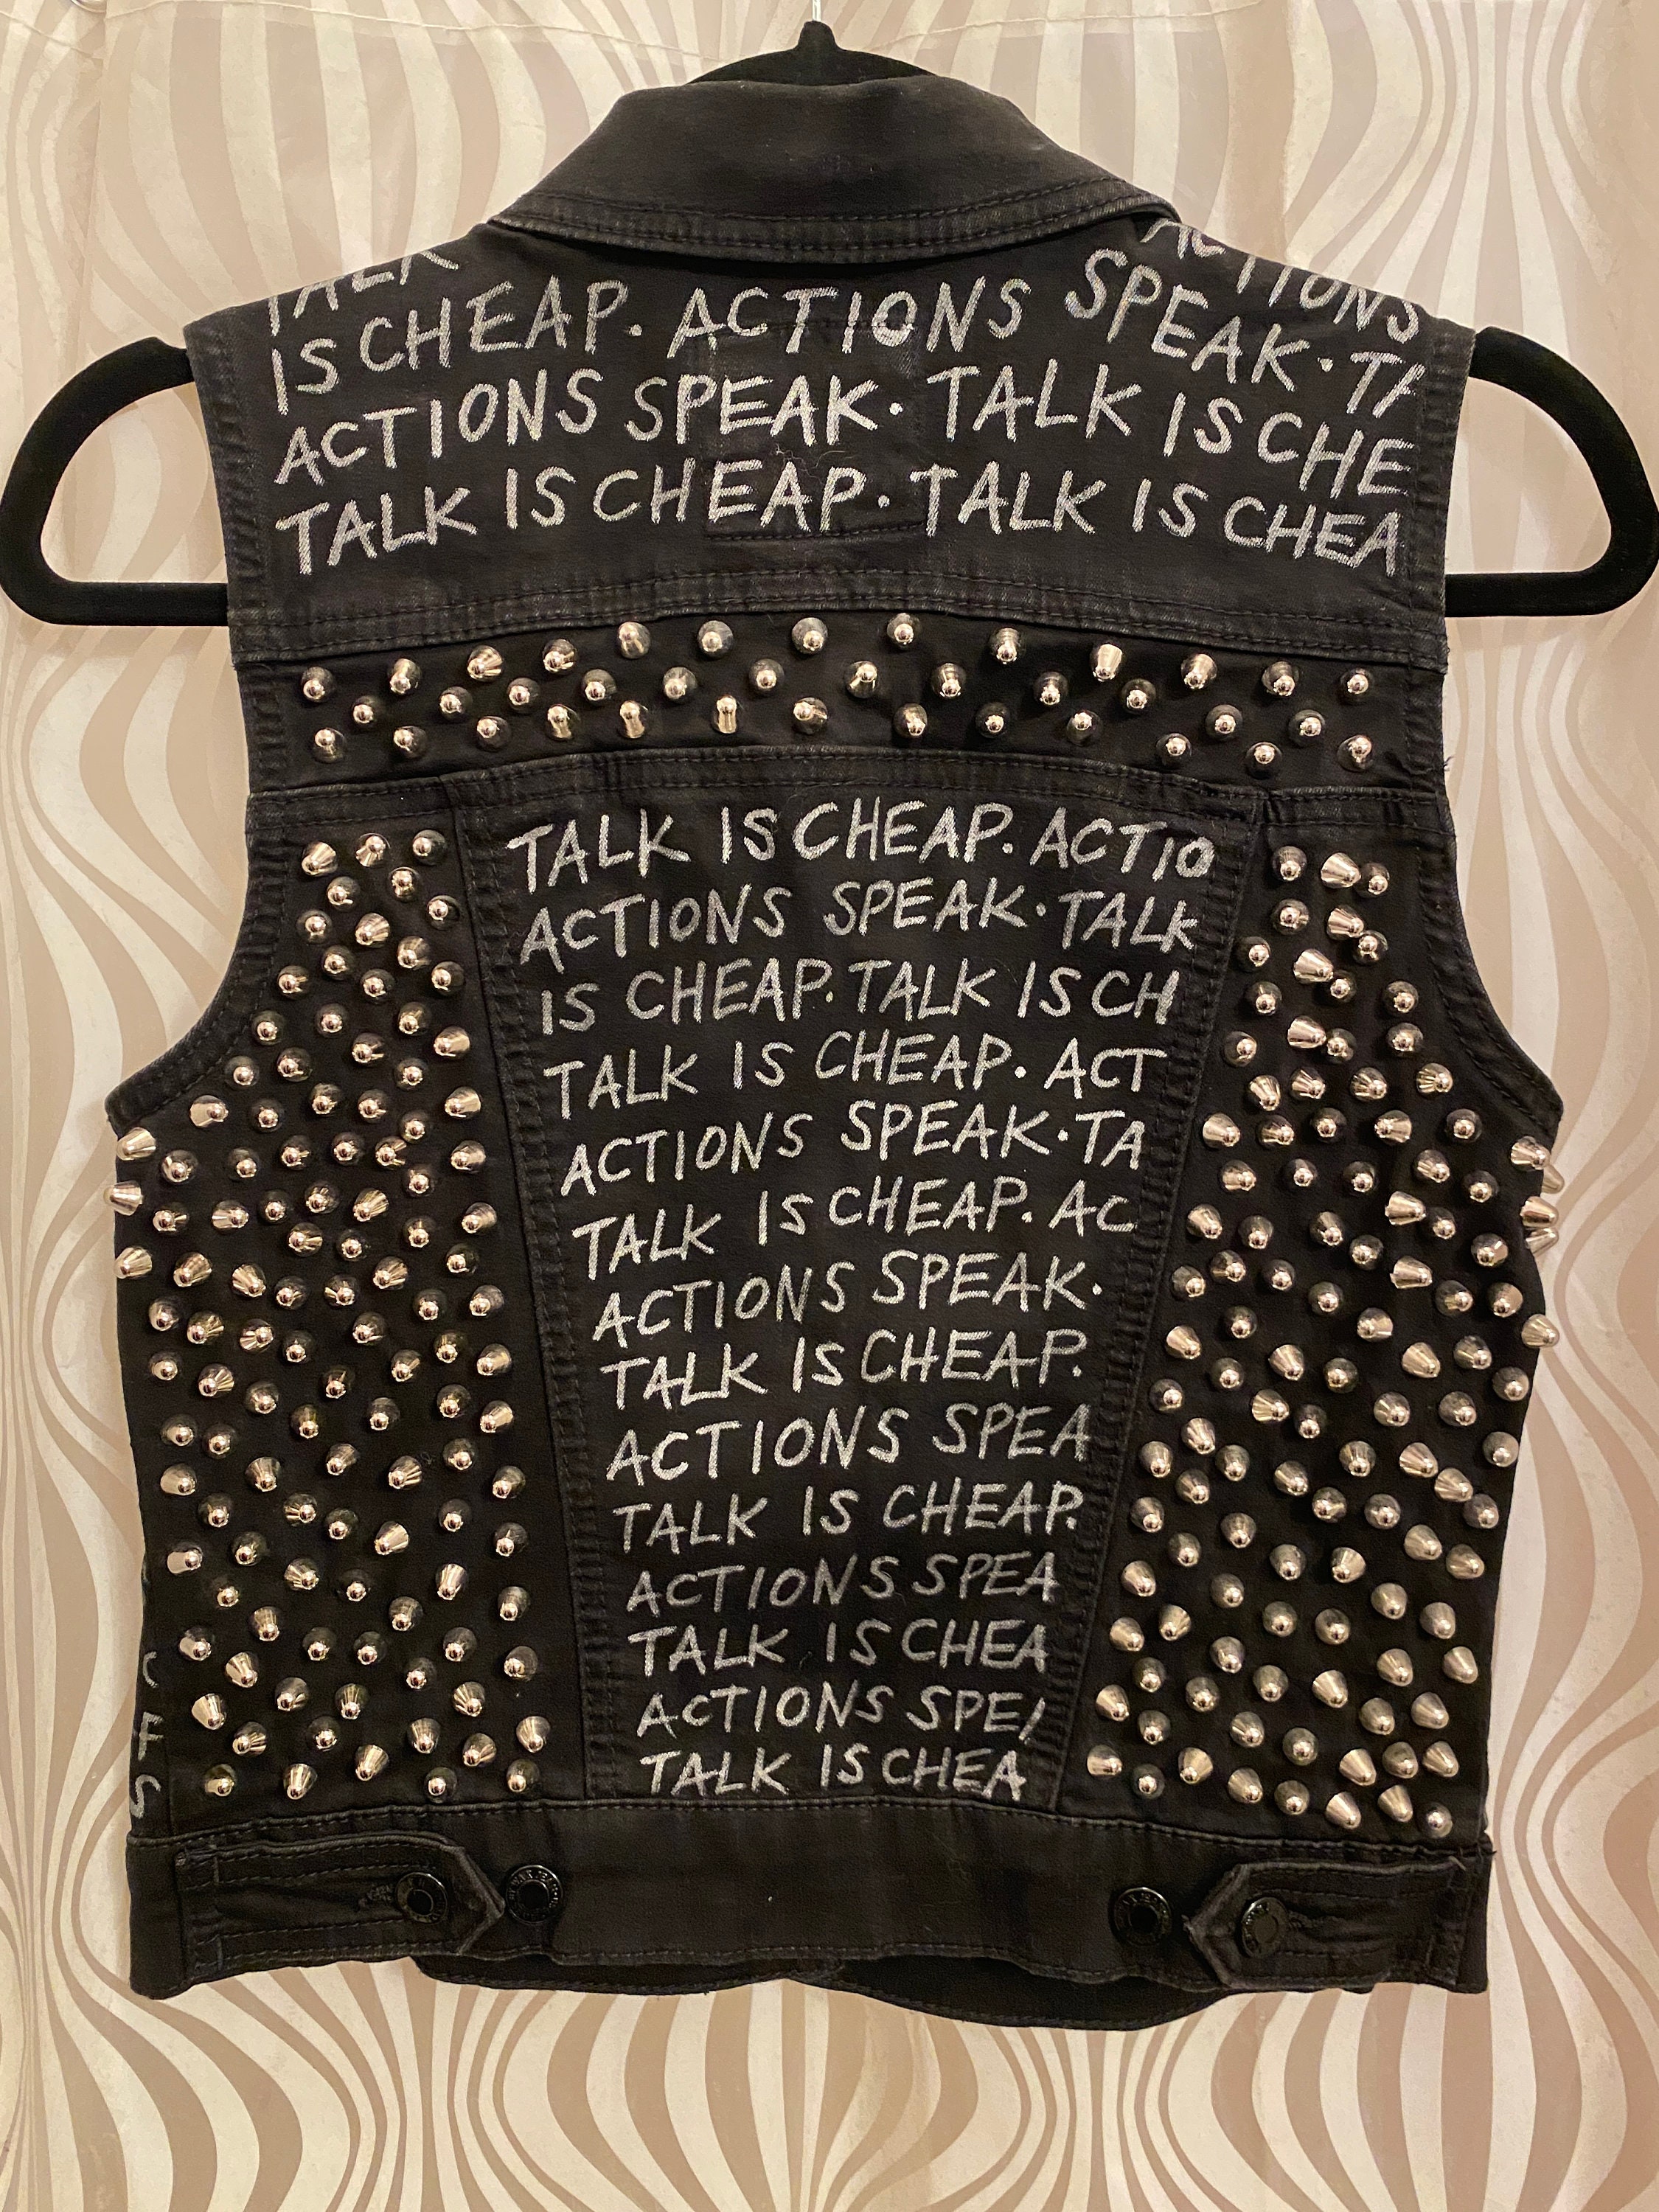 TALK
ACTIONS
IS CHEAP. ACTIONS SPEAK. TA
ACTIONS SPEAK. TALK IS CHE
TALK IS CHEAP. TALK IS CHEA
TALK IS CHEAP. ACTIO
ACTIONS SPEAK. TALK
IS CHEAP. TALK IS CH
TALK IS CHEAP. ACT
ACTIONS SPEAK. TA
TALK IS CHEAP. AC
ACTIONS SPEAK.
TALK IS CHEAP.
ACTIONS SPEA
TALK IS CHEAP.
ACTIONS SPEA
TALK IS CHEA
ACTIONS SPE
TALK IS CHEA
C
F
S